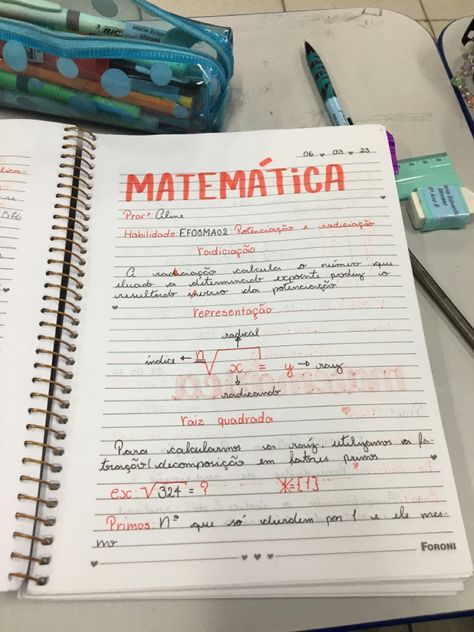 06 03 23
MATEMÁTICA
Profª Aline
Habilidade: EF08MA02 Potenciação e radiciação
radiciação
A radiciação calcula o número que
elevado a determinado expoente produz o
resultado inverso da potenciação
representação
radical
índice ← n√x = y → raiz
radicando
raiz quadrada
Para calcularmos a raiz, utilizamos a fa-
toração/decomposição em fatores primos
ex: √324 = ? *={1}
Primos: Nºs que só dividem por 1 e ele mes-
mo
FORONI
BIC